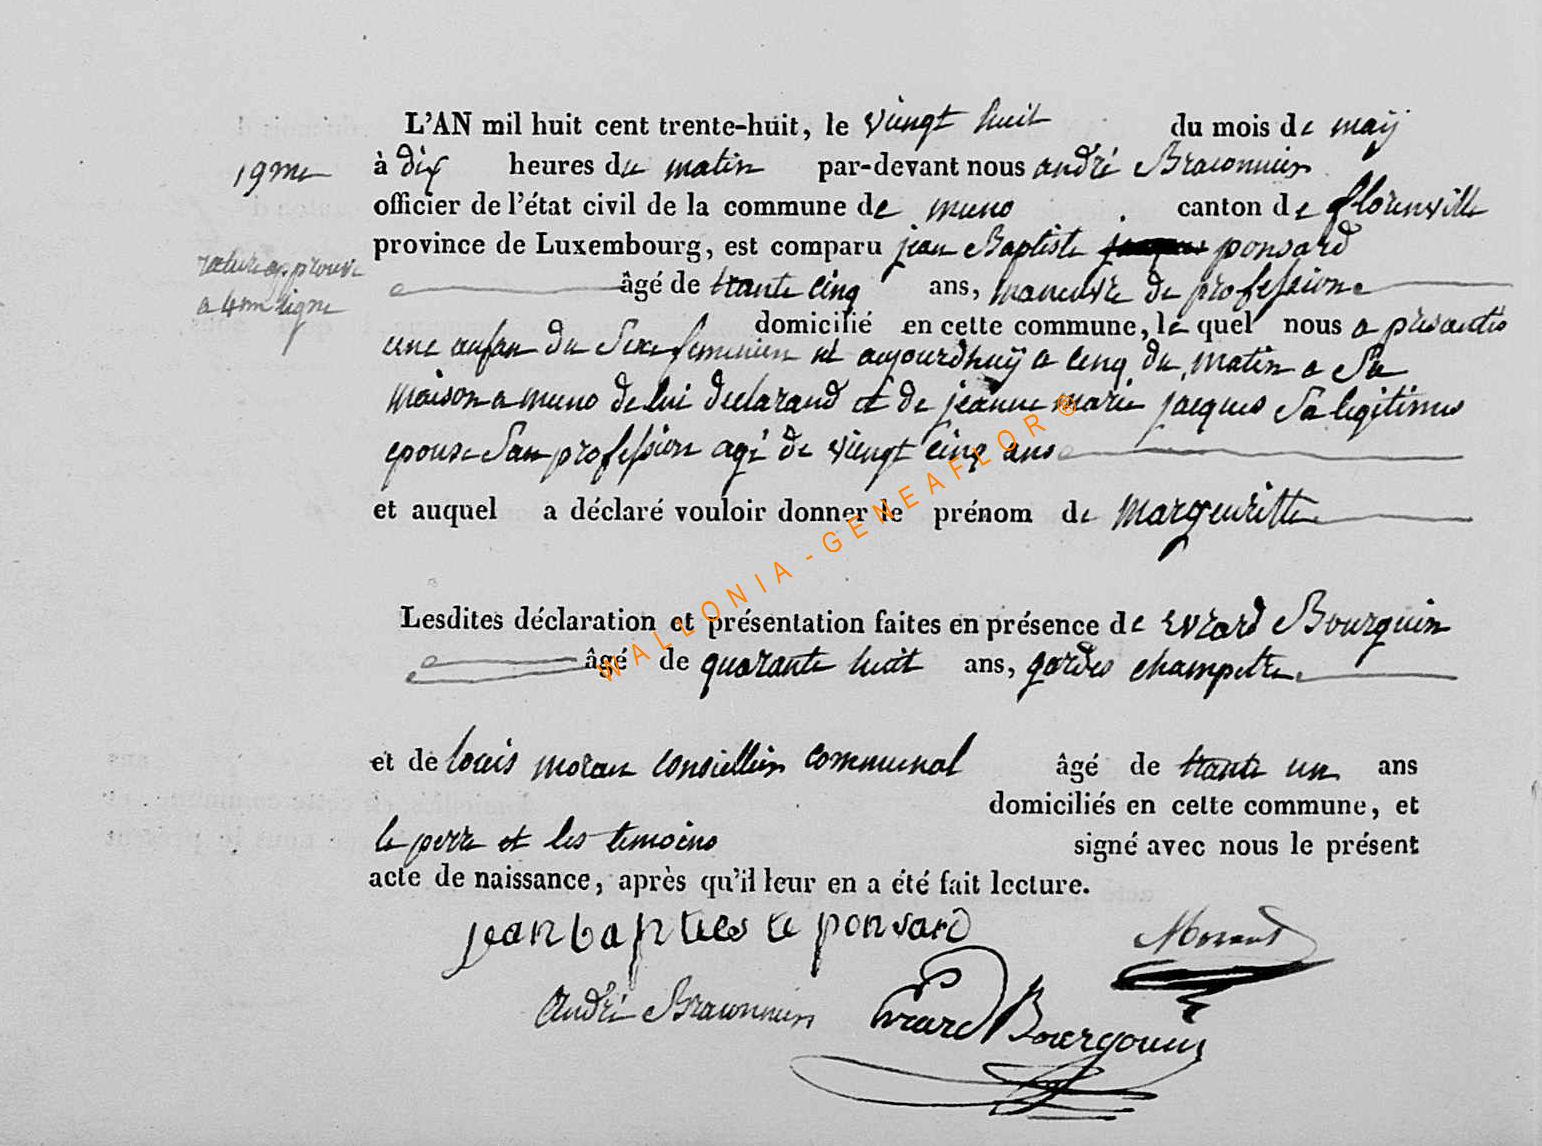 L'AN mil huit cent trente-huit, le viengt huit du mois de maÿ
19me
à dix heures du matin par-devant nous andré Braconnier
officier de l'état civil de la commune de muno canton de florenville
province de Luxembourg, est comparu jean Baptiste jacques ponsard
rature approuvé
a 4me ligne
âgé de trante cinq ans, maneuvre de profession
domicilié en cette commune, le quel nous a présantés
une anfan du Sexe feminien né aujourdhuÿ a cinq du matin a Sa
maison a muno de lui declarand et de jeanne marie jacques Sa legitimes
epouse San profession agé de viengt cinq ans
et auquel a déclaré vouloir donner le prénom de margeuritte
Lesdites déclaration et présentation faites en présence de Evrard Bourguin
âgé de quarante huit ans, gardes champetre
et de louis moran consiellier communal âgé de trante un ans
domiciliés en cette commune, et
le perre et les temoins signé avec nous le présent
acte de naissance, après qu'il leur en a été fait lecture.
jean baptiees te ponsard Morant
André Braconnier Evrard Bourgouin
WALLONIA-GENEAFLOR®